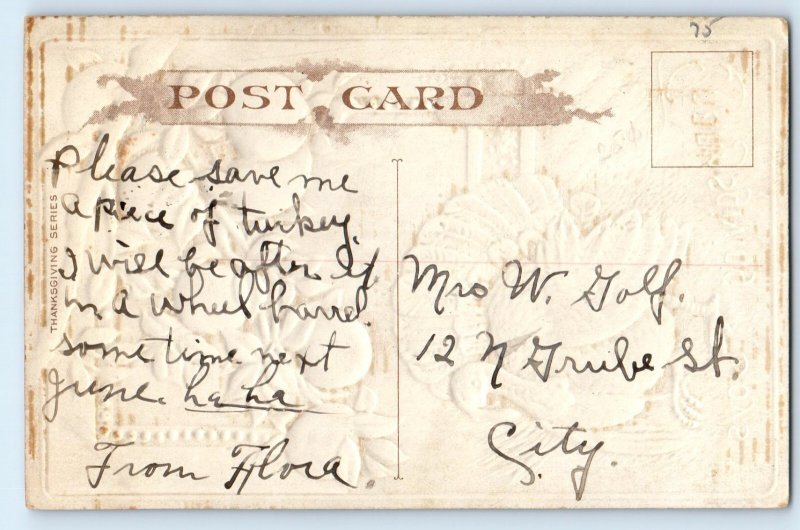 75
POST CARD
THANKSGIVING SERIES
Please save me
a piece of turkey.
I will be after it
in a wheel barrel
some time next
June. ha ha
From Flora.
Mrs W. Golf.
12 N Grube St.
City.